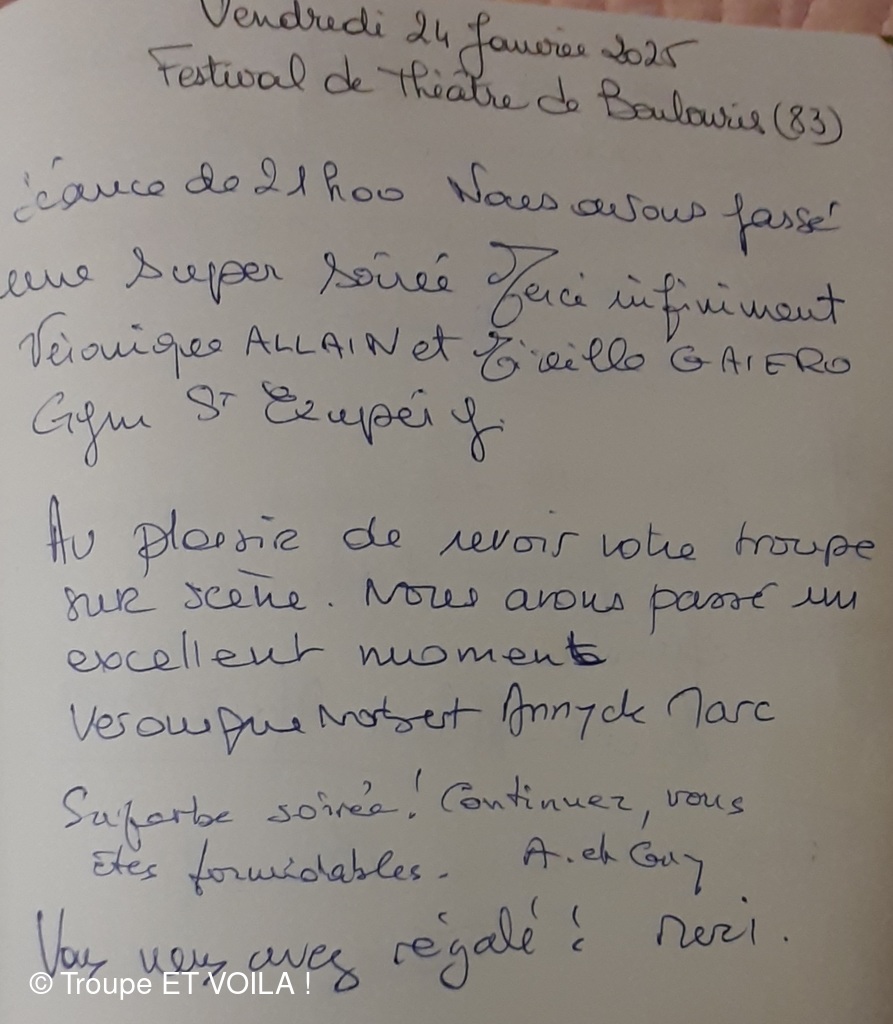 Vendredi 24 Janvier 2025
Festival de Théâtre de Boulouris (83)
séance de 21h00 Nous avons passé
une super soirée Merci infiniment
Véronique ALLAIN et GAIERO
Gym St Exupéry
Au plaisir de revoir votre troupe
sur scène. Nous avons passé un
excellent moment
Veronique Norbert Annyck Marc
Superbe soirée! Continuez, vous
êtes formidables. A. et Guy
Vous nous avez régalé! merci.
© Troupe ET VOILA !